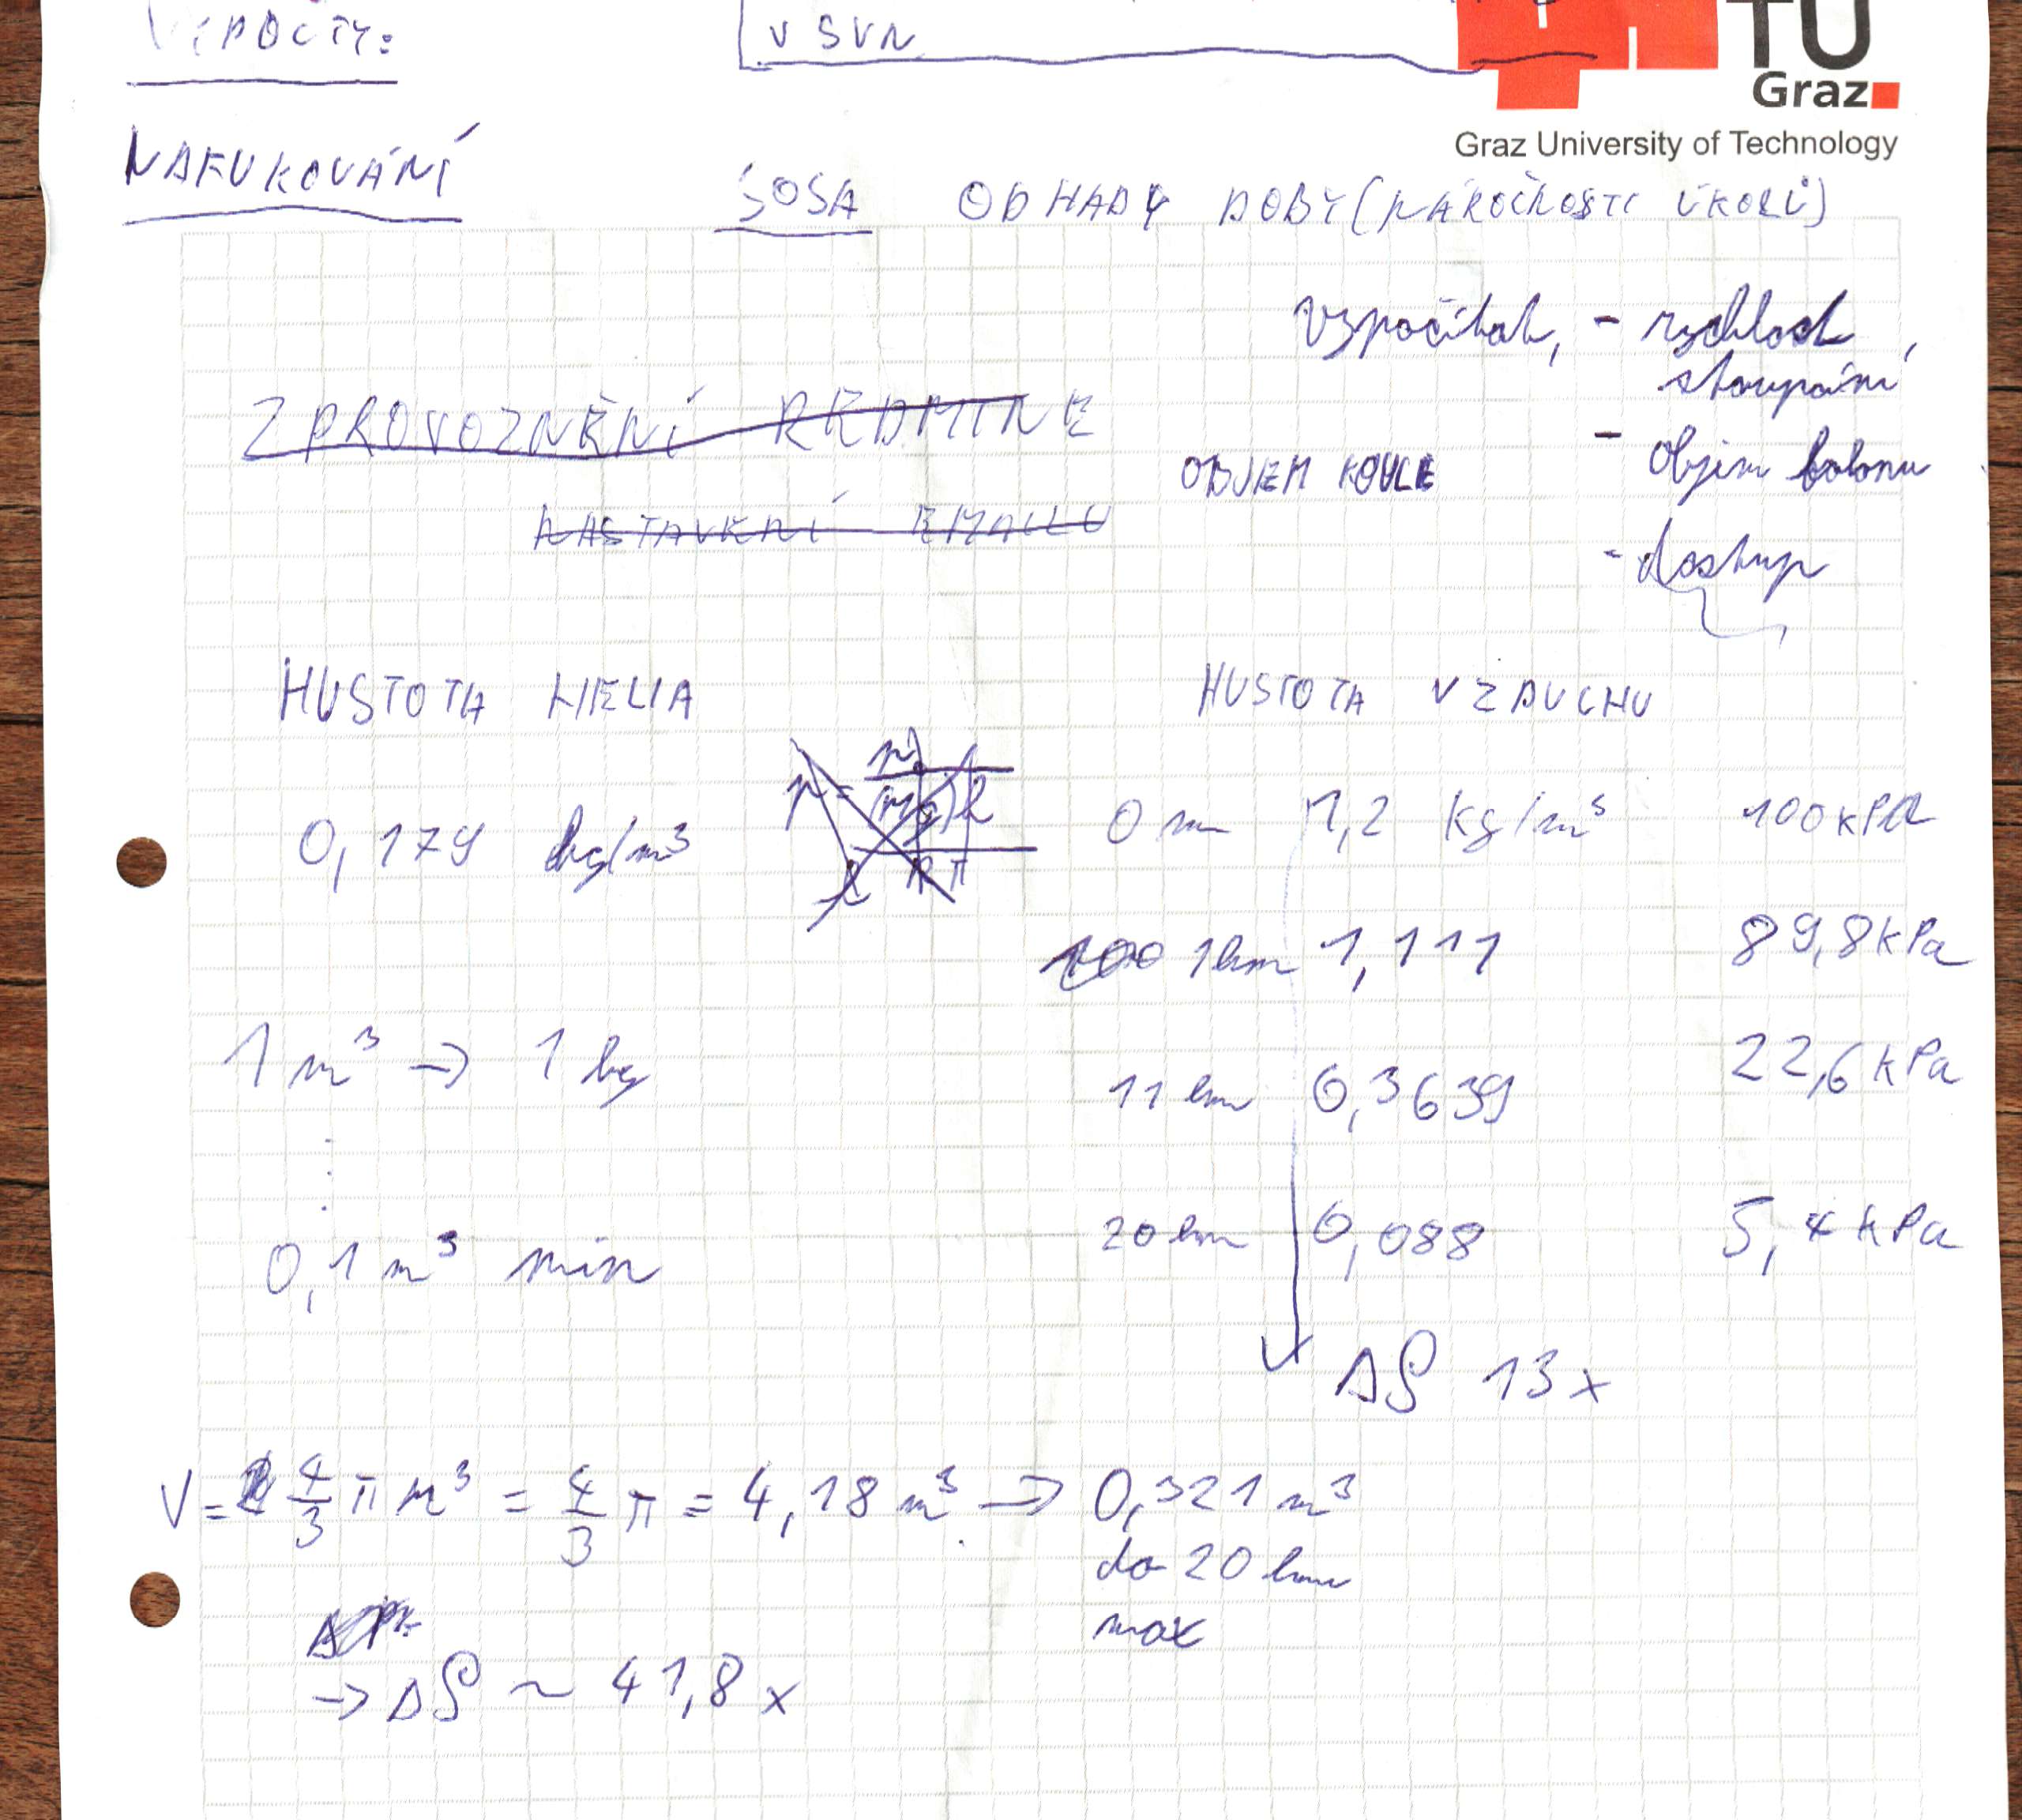 VÝPOČTY:
V SVN
TU
Graz
Graz University of Technology
NAFUKOVÁNÍ
SOSA ODHADY DOBY (NÁROČNOSTI ÚKOLŮ)
vypočítat, - rychlost
stoupání
ZPROVOZNĚNÍ REDMINE
- objem balonu
OBJEM KOULE
NASTAVENÍ EMAILU
- dostup
HUSTOTA HELIA
HUSTOTA VZDUCHU
0,179 kg/m³
0 m 1,2 kg/m³ 100 kPa
1 km 1,111 89,8 kPa
1 m³ → 1 kg
11 km 0,3639 22,6 kPa
0,1 m³ min
20 km 0,088 5,4 kPa
Δρ 13 x
V = 4/3 π m³ = 4/3 π = 4,18 m³ → 0,321 m³
do 20 km
max
→ Δρ ~ 41,8 x